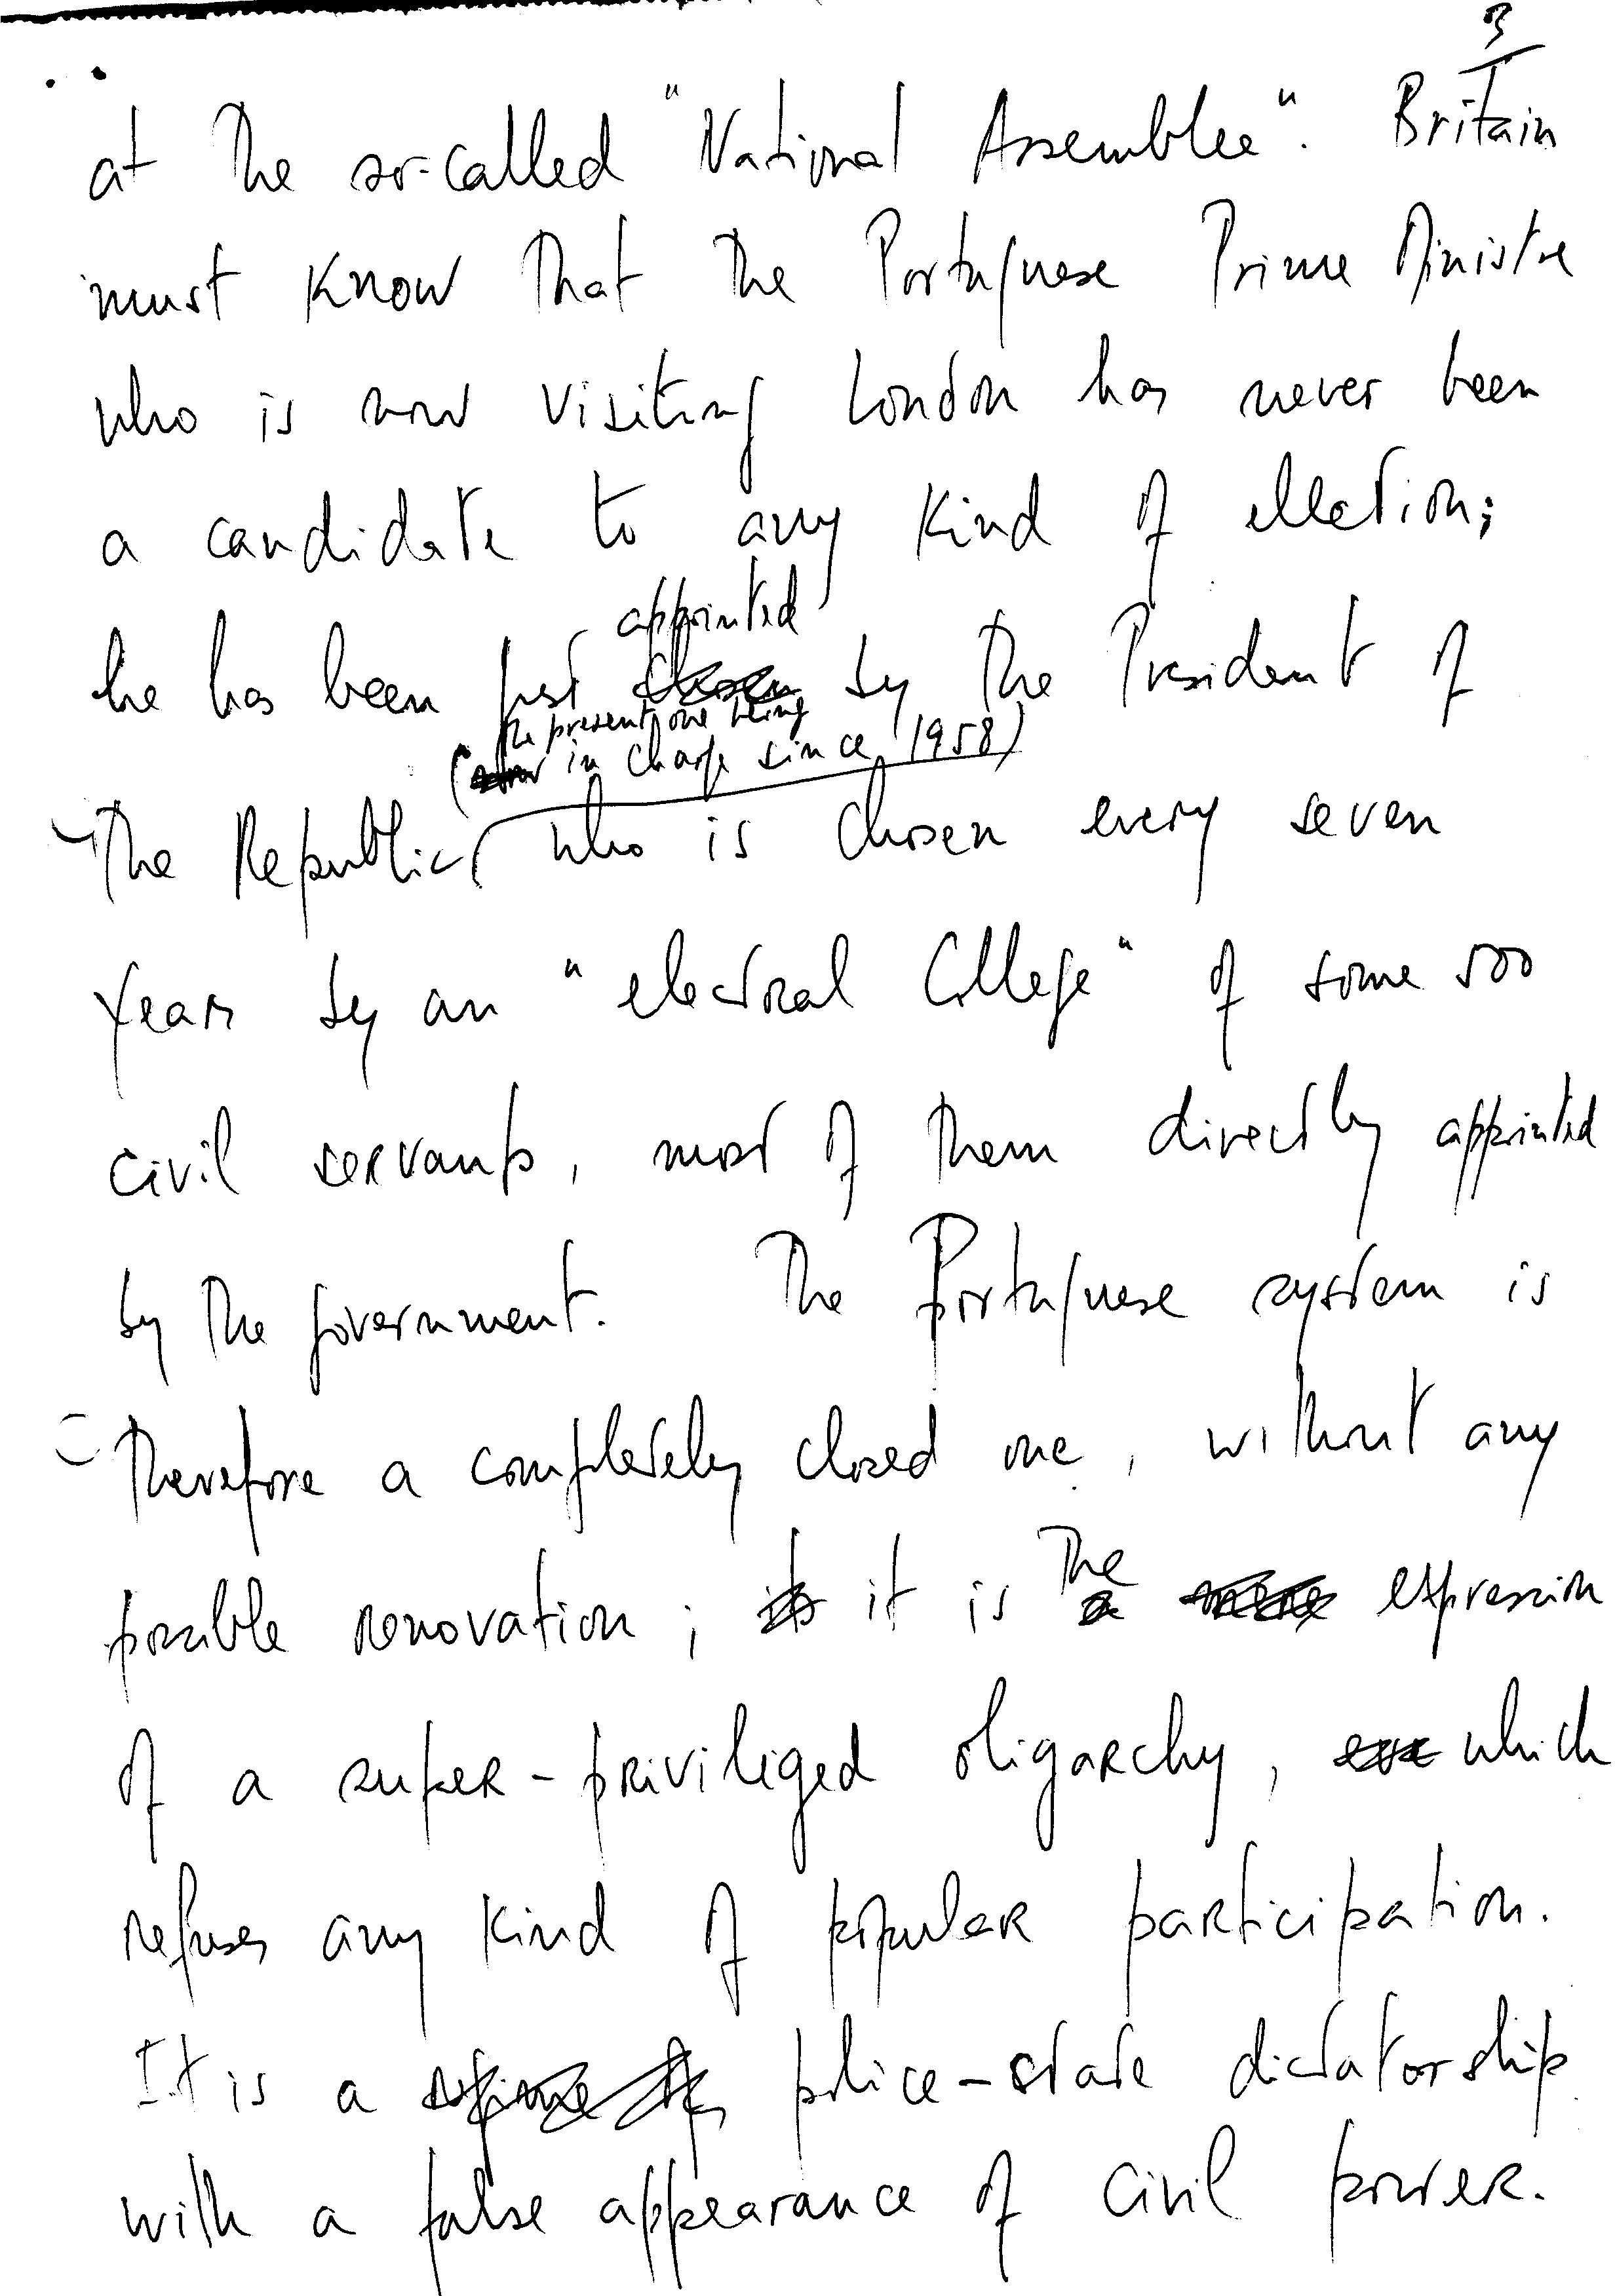 3
at the so-called "National Assemblee". Britain
must know that the Portuguese Prime Ministre
who is now visiting London has never been
a candidate to any kind of ellection;
appointed
he has been just chosen by the President of
the present one being
(now in charge since 1958)
the Republic who is chosen every seven
years by an "electoral College" of some 500
civil servants, most of them directly appointed
by the government. The Portuguese system is
therefore a completely closed one, without any
the
possible renovation; it is a mere expression
of a super-priviliged oligarchy, which
refuses any kind of popular participation.
It is a regime of police-state dictatorship
with a false appearance of civil power.